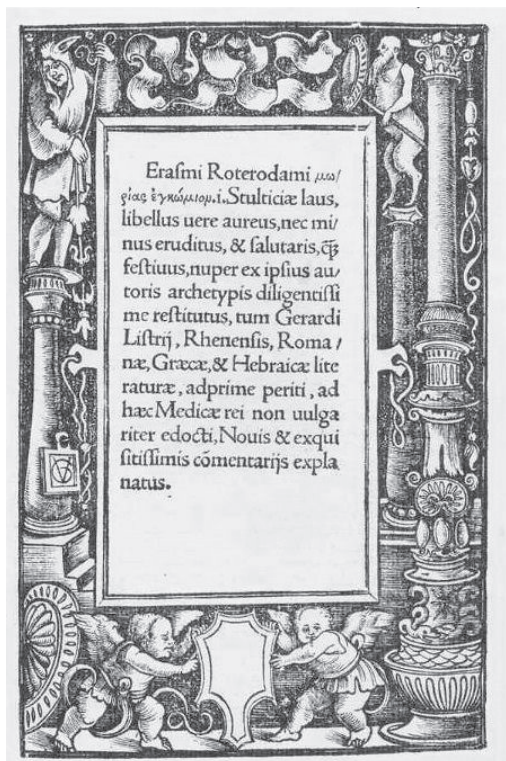 Eraſmi Roterodami μω/
ρίας ἐγκώμιον.i. Stulticiæ laus,
libellus uere aureus, nec mi/
nus eruditus, & ſalutaris, ꝙ̃
feſtiuus, nuper ex ipſius au/
toris archetypis diligentiſſi
me reſtitutus, tum Gerardi
Liſtrij, Rhenenſis, Roma/
næ, Græcæ, & Hebraicæ lite
raturæ, adprime periti, ad
hæc Medicæ rei non uulga
riter edocti, Nouis & exqui
ſitiſſimis cõmentarijs expla
natus.
VG